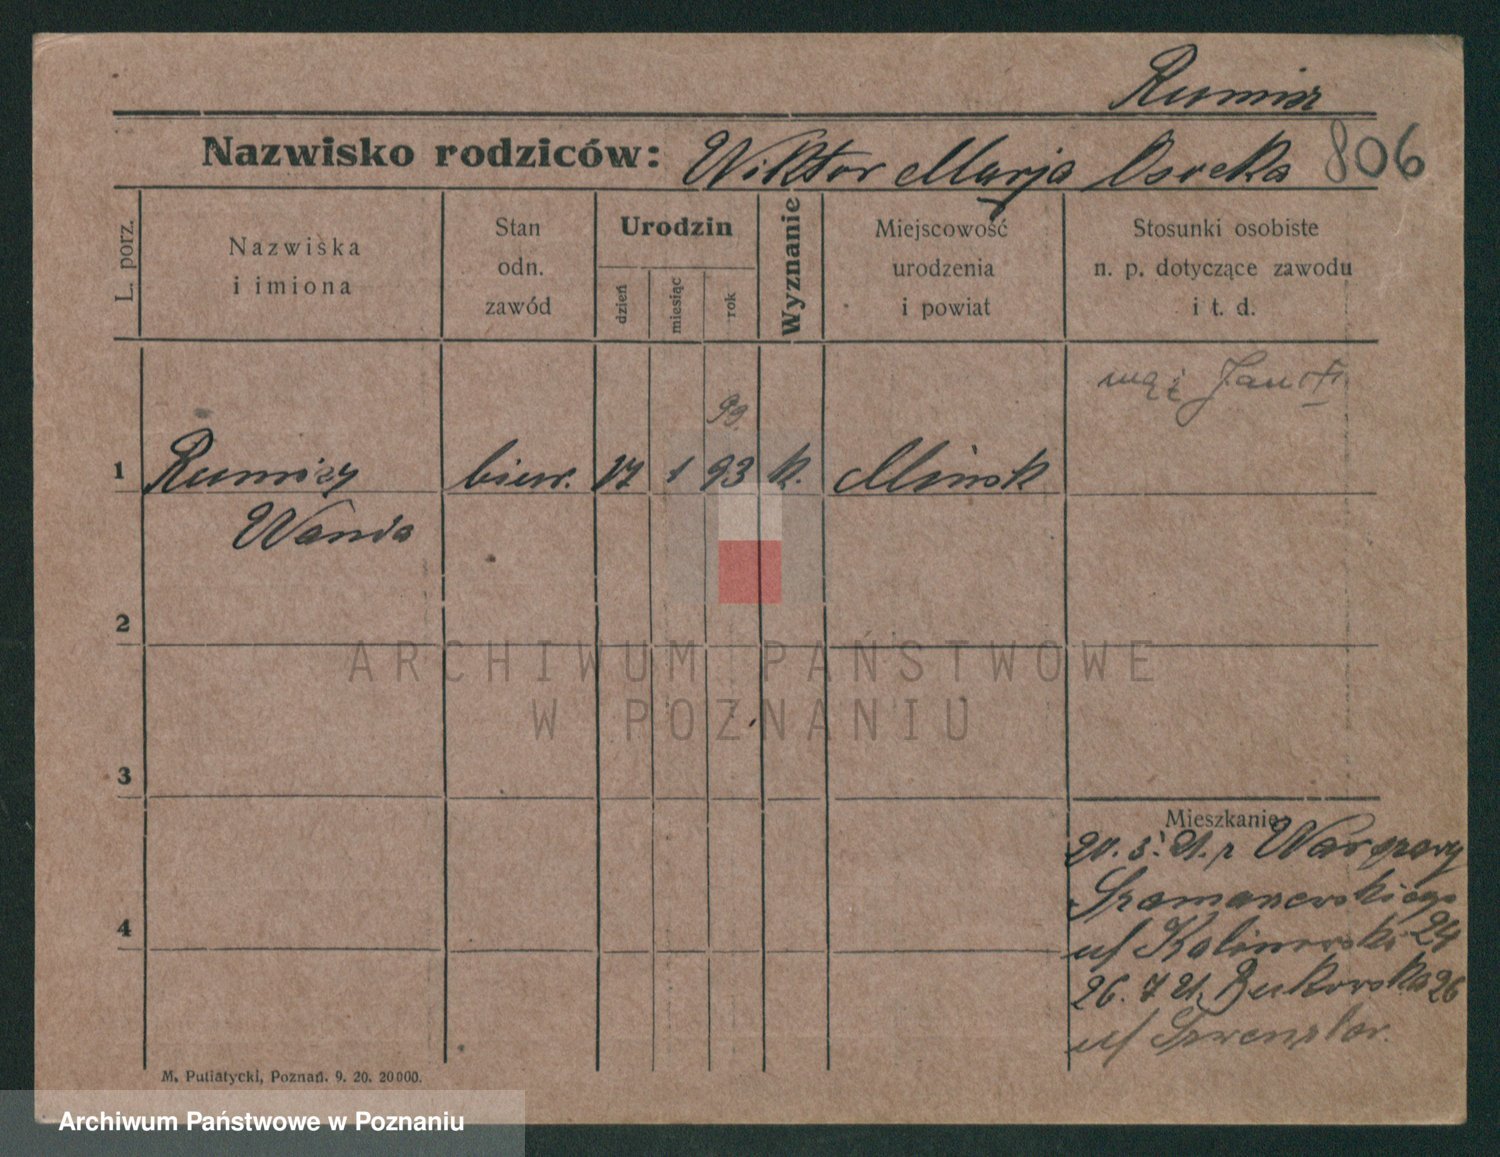 Rumisz
Nazwisko rodziców: Wiktor Marja Osocka 806
L. porz.
Nazwiska
i imiona
Stan
odn.
zawód
Urodzin
dzień
miesiąc
rok
Wyznanie
Miejscowość
urodzenia
i powiat
Stosunki osobiste
n. p. dotyczące zawodu
i t. d.
mąż Jan
99.
1 biur. 17 1 93 k. Mińsk
Wanda
2
3
4
Mieszkanie
20. 5. 21. z Warszawy
Szamarzewskiego
u/ Kalinowski 24
26. 7 21. Bukowska 26
u/
M. Putiatycki, Poznań. 9. 20. 20000.
ARCHIWUM PAŃSTWOWE
W POZNANIU
Archiwum Państwowe w Poznaniu